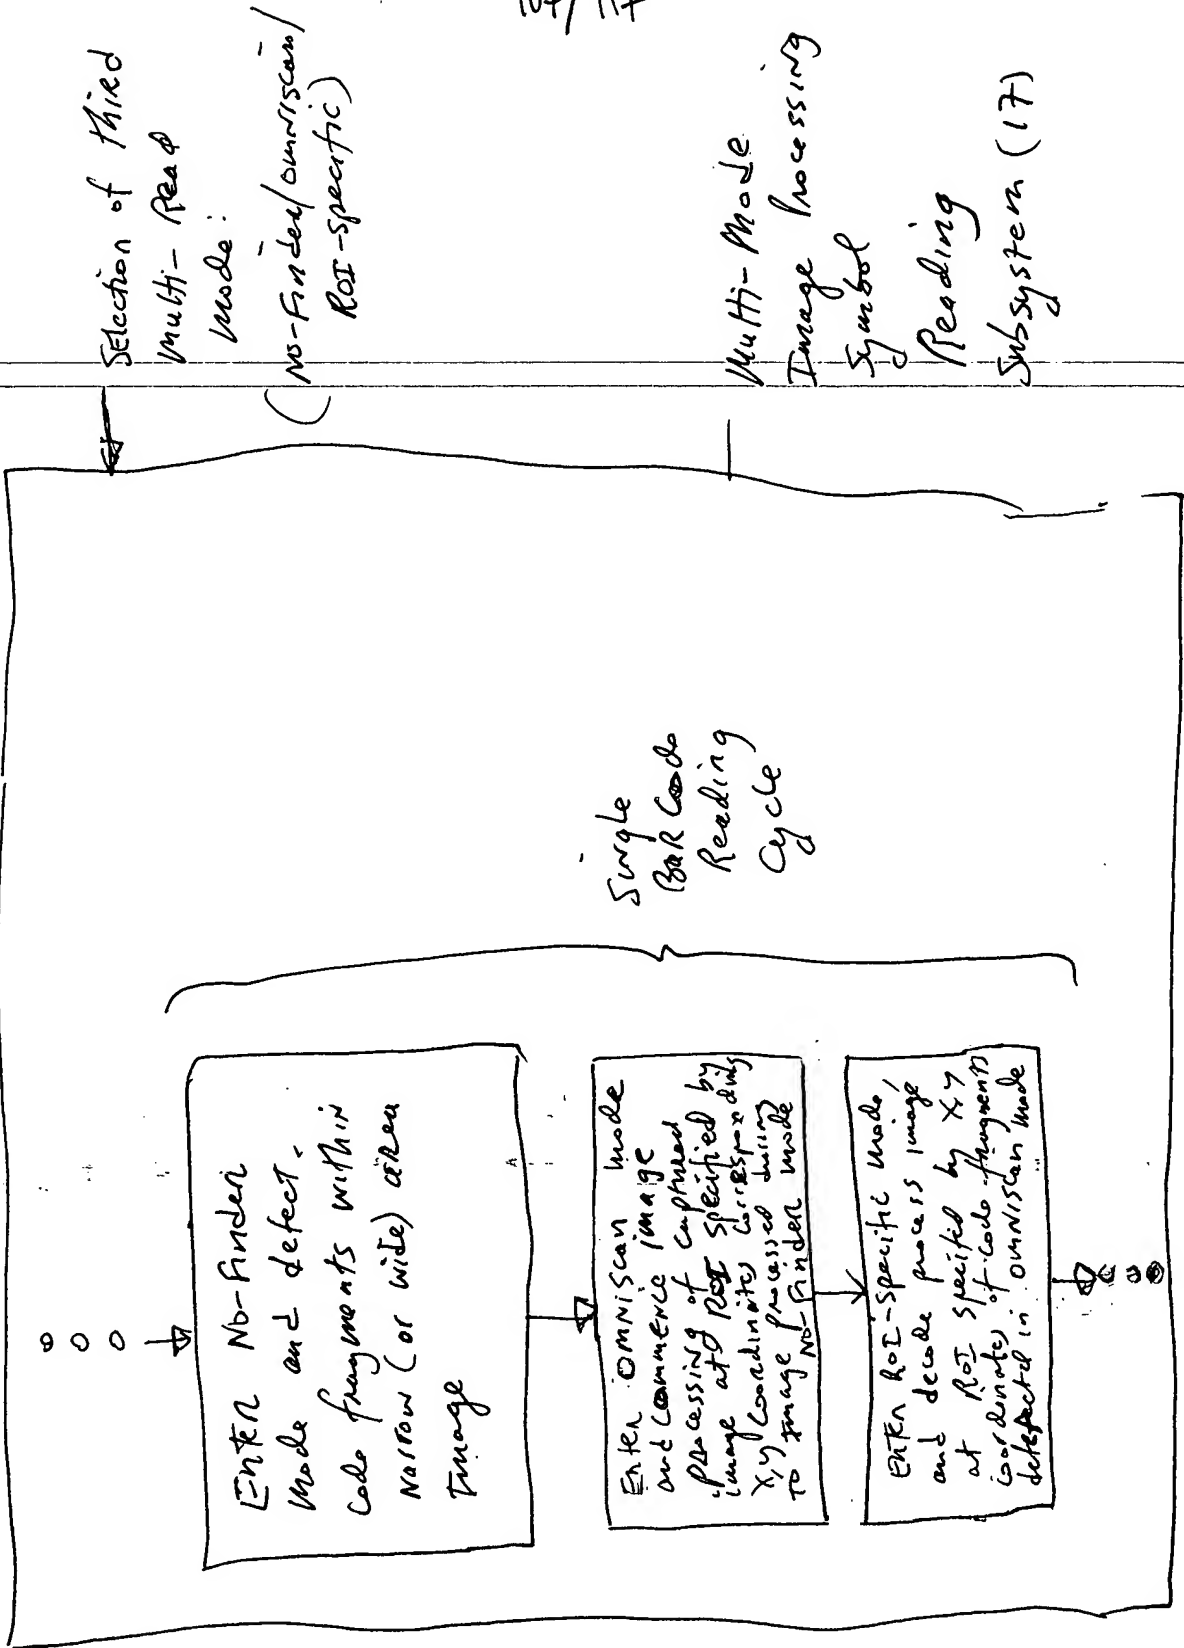 107/117
Selection of third
Multi-Read
Mode:
(No-Finder/omniscan/
ROI-specific)
Multi-Mode
Image Processing
Symbol
Reading
Subsystem (17)
Single
Bar Code
Reading
Cycle
Enter No-Finder
Mode and detect
Code fragments within
Narrow (or wide) area
Image
Enter OMNISCAN Mode
and commence image
processing of captured
image at ROI specified by
x,y coordinates corresponding
to image processed during
No-Finder mode
Enter ROI-Specific mode,
and decode process image
at ROI specified by x,y
coordinates of code fragments
detected in OMNISCAN Mode